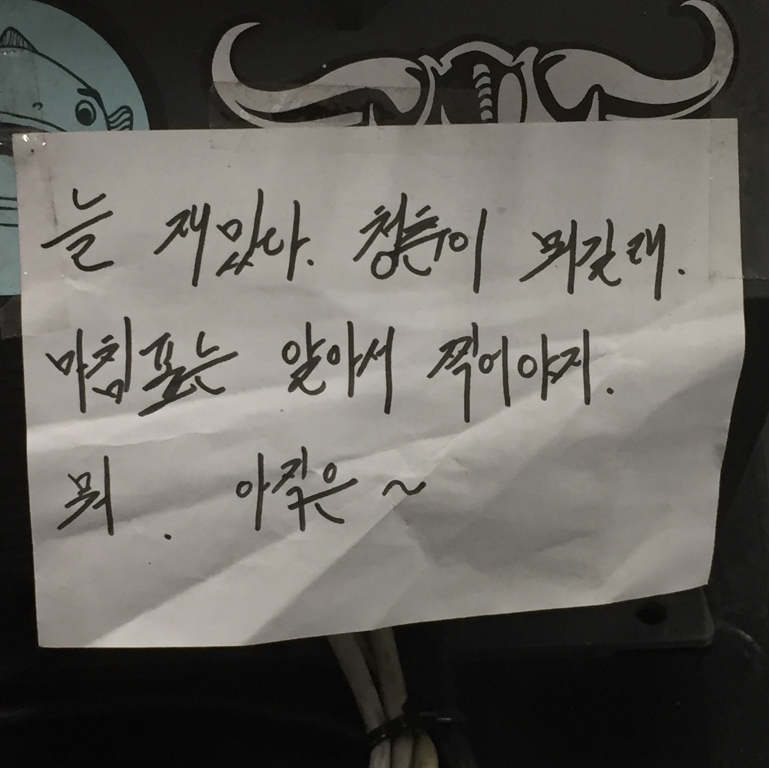 늘 재밌다. 청춘이 뭐길래.
마침표는 알아서 찍어야지.
뭐. 아직은~